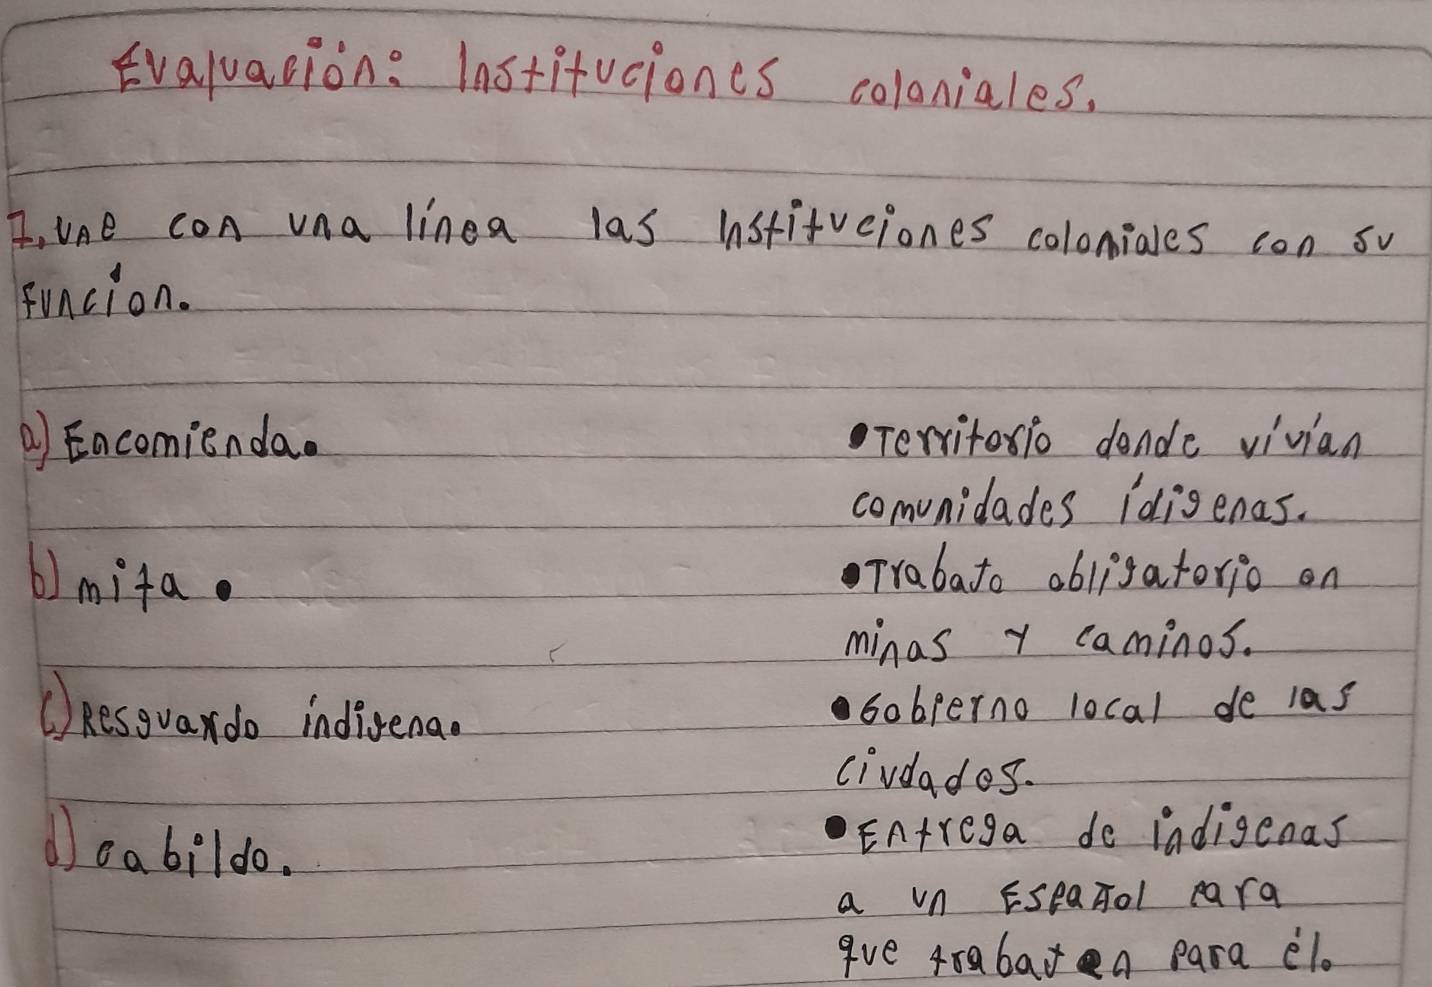 Evaluación: Instituciones coloniales.
1. une con una línea las instituciones coloniales con su
función.
a) Encomienda.
•Territorio donde vivían
comunidades idigenas.
b) mita •
•Trabajo obligatorio en
minas y caminos.
c) Resguardo indigena.
•Gobierno local de las
ciudades.
d) cabildo.
•Entrega de indigenas
a un Español para
que trabajen para él.